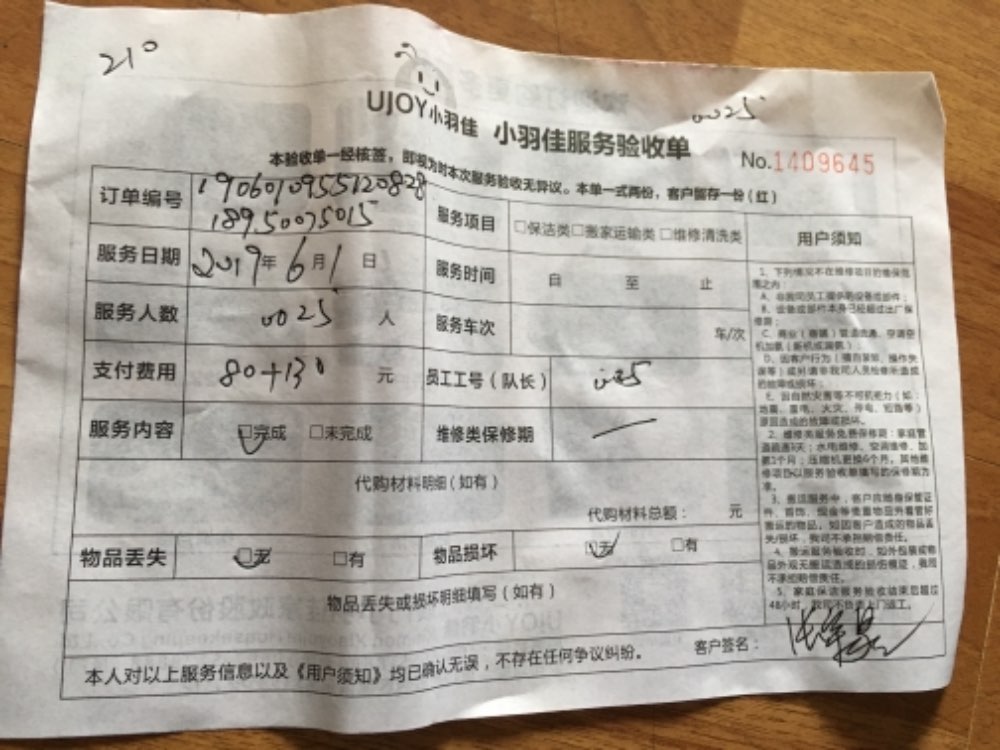 210
0025
UJOY小羽佳 小羽佳服务验收单
No.1409645
本验收单一经核签，即视为对本次服务验收无异议。本单一式两份，客户留存一份（红）
订单编号 190601095512082８
18950075015
服务项目 □保洁类□搬家运输类□维修清洗类
用户须知
服务日期 2019年6月1日
服务时间 自 至 止
服务人数 0025 人
服务车次 车/次
支付费用 80+130 元
员工工号（队长） 0025
服务内容 □完成 □未完成
维修类保修期 —
1、下列情况不在维修项目的维保范
围之内：
A、非我司员工提供的设备或部件；
B、设备或部件本身已经超过出厂保
修期；
D、因客户行为（擅自拆卸、操作失
误等）或
的故障或损坏；
E、因自然灾害等不可抗拒力（如：
地震、雷电、火灾、停电、短路等）
原因造成的故障或损坏。
2、维修类服务免费保修期：家庭管
道疏通3天；水电维修、空调维修、加
氨1个月；压缩机更换6个月。其他维
修项目以服务验收单填写的保修期为
准。
3、搬运服务中，客户应随身保管证
件、首饰、现金等贵重物品并看管好
搬运的物品。如因客户造成的物品丢
失/损坏，我司不承担赔偿责任。
4、搬运服务验收时，如外包装或物
品外观无搬运造成的损伤痕迹，我司
不承担赔偿责任。
5、家庭保洁服务验收结束后超过
48小时，我司不负责上门返工。
代购材料明细（如有）
代购材料总额： 元
物品丢失 □无 □有
物品损坏 □无 □有
物品丢失或损坏明细填写（如有）
客户签名：
本人对以上服务信息以及《用户须知》均已确认无误，不存在任何争议纠纷。